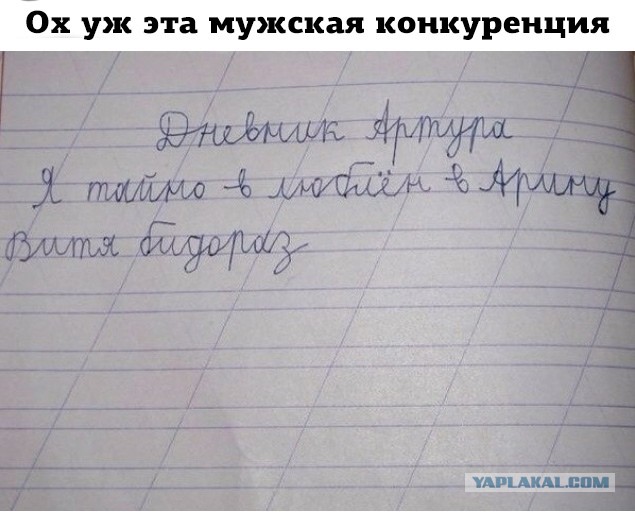 Ох уж эта мужская конкуренция
Дневник Артура
Я тайно в люблён в Арину
Витя бидораз
YAPLAKAL.COM